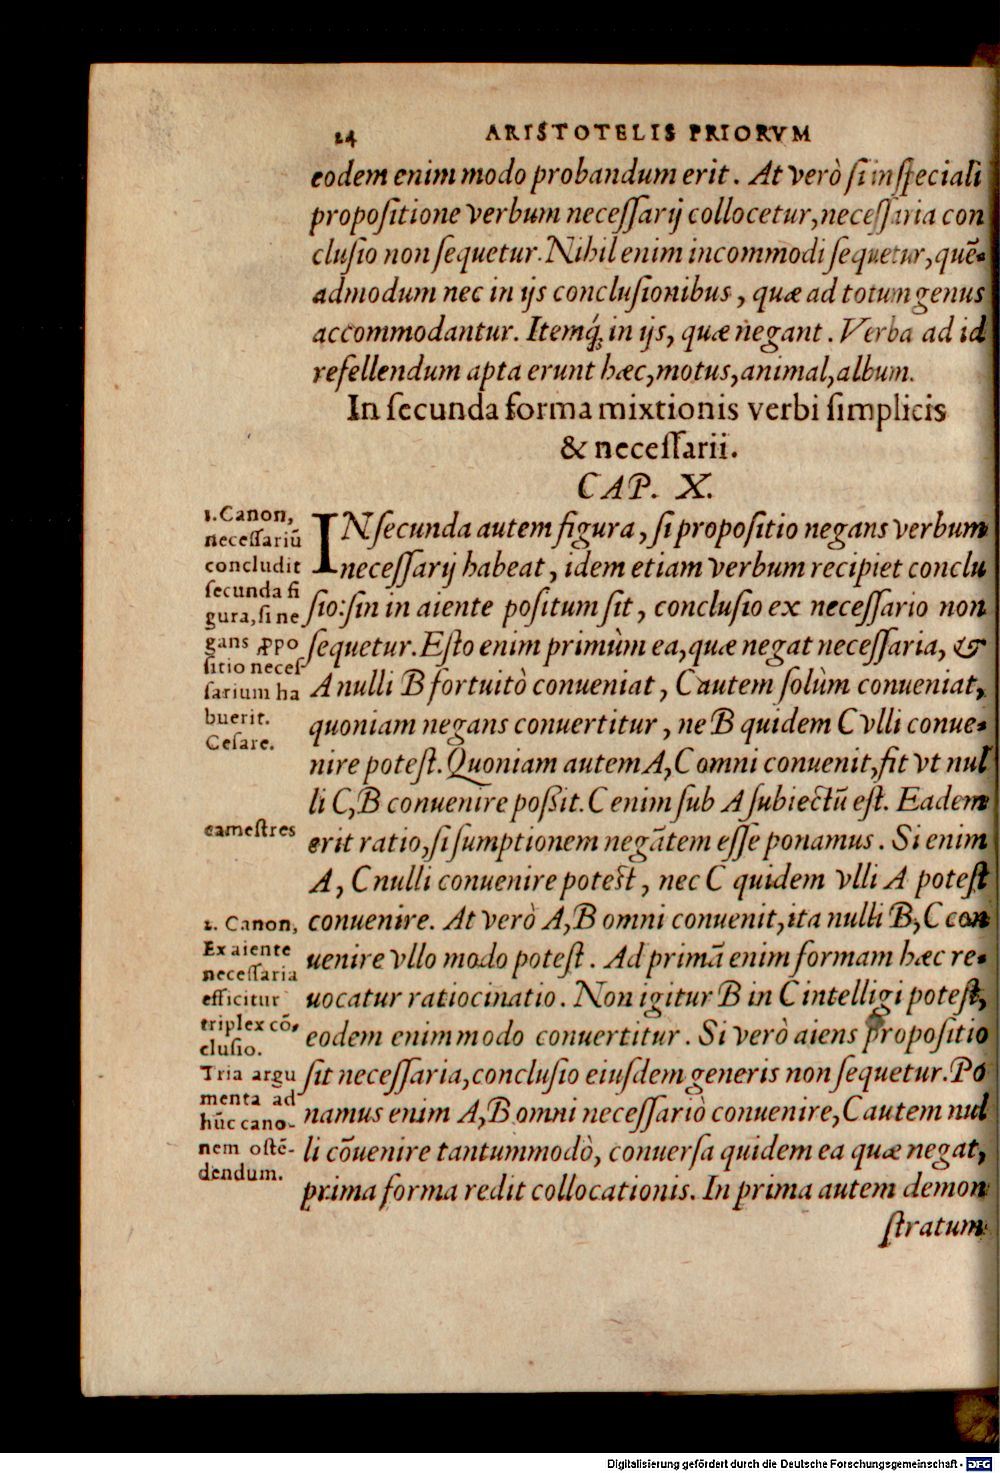 24 ARISTOTELIS PRIORVM
eodem enim modo probandum erit. At verò si in speciali
propositione verbum necessarij collocetur, necessaria con
clusio non sequetur. Nihil enim incommodi sequetur, quē-
admodum nec in ijs conclusionibus, quæ ad totum genus
accommodantur. Itemq́; in ijs, quæ negant. Verba ad id
refellendum apta erunt hæc, motus, animal, album.
In secunda forma mixtionis verbi simplicis
& necessarii.
CAP. X.
IN secunda autem figura, si propositio negans verbum
necessarij habeat, idem etiam verbum recipiet conclu
sio: sin in aiente positum sit, conclusio ex necessario non
sequetur. Esto enim primùm ea, quæ negat necessaria, &
A nulli B fortuitò conueniat, C autem solùm conueniat,
quoniam negans conuertitur, ne B quidem C vlli conue-
nire potest. Quoniam autem A, C omni conuenit, fit vt nul
li C, B conuenire possit. C enim sub A subiectū est. Eadem
erit ratio, si sumptionem negātem esse ponamus. Si enim
A, C nulli conuenire potest, nec C quidem vlli A potest
conuenire. At verò A, B omni conuenit, ita nulli B, C con
uenire vllo modo potest. Ad primā enim formam hæc re-
uocatur ratiocinatio. Non igitur B in C intelligi potest,
eodem enim modo conuertitur. Si verò aiens propositio
sit necessaria, conclusio eiusdem generis non sequetur. Po
namus enim A, B omni necessariò conuenire, C autem nul
li cōuenire tantummodò, conuersa quidem ea quæ negat,
prima forma redit collocationis. In prima autem demon
stratum
1. Canon,
necessariū
concludit
secunda fi
gura, si ne
gans ꝓpo
sitio neces
sarium ha
buerit.
Cesare.
camestres
2. Canon,
Ex aiente
necessaria
efficitur
triplex cō-
clusio.
Tria argu
menta ad
hūc cano-
nem ostē-
dendum.
Digitalisierung gefördert durch die Deutsche Forschungsgemeinschaft - DFG